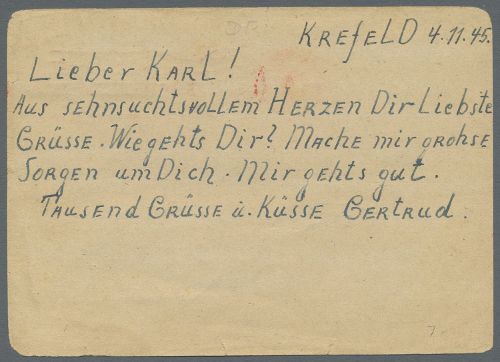 Krefeld 4.11.45.
Lieber Karl!
Aus sehnsuchtsvollem Herzen Dir Liebste
Grüsse. Wie gehts Dir? Mache mir grohse
Sorgen um Dich. Mir gehts gut.
Tausend Grüsse u. Küsse Gertrud.